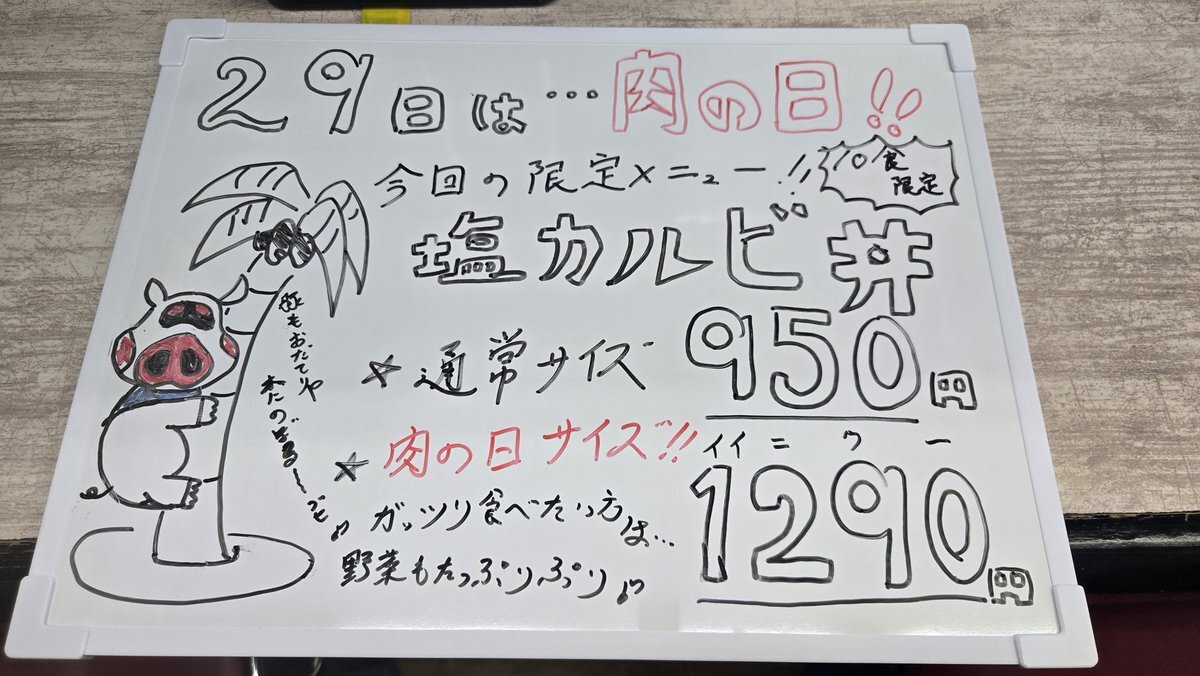 29日は…肉の日!!
今回の限定メニュー!!
10食
限定
塩カルビ丼
★通常サイズ 950円
★肉の日サイズ!!
イイニクー
1290円
ガッツリ食べたい方は…
野菜もたっぷりぷり♪
豚もおだてりゃ
木にのぼるー